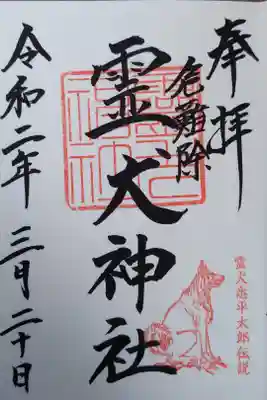 奉拝
危難除
霊犬神社
令和二年 三月二十日
霊犬悉平太郎伝説